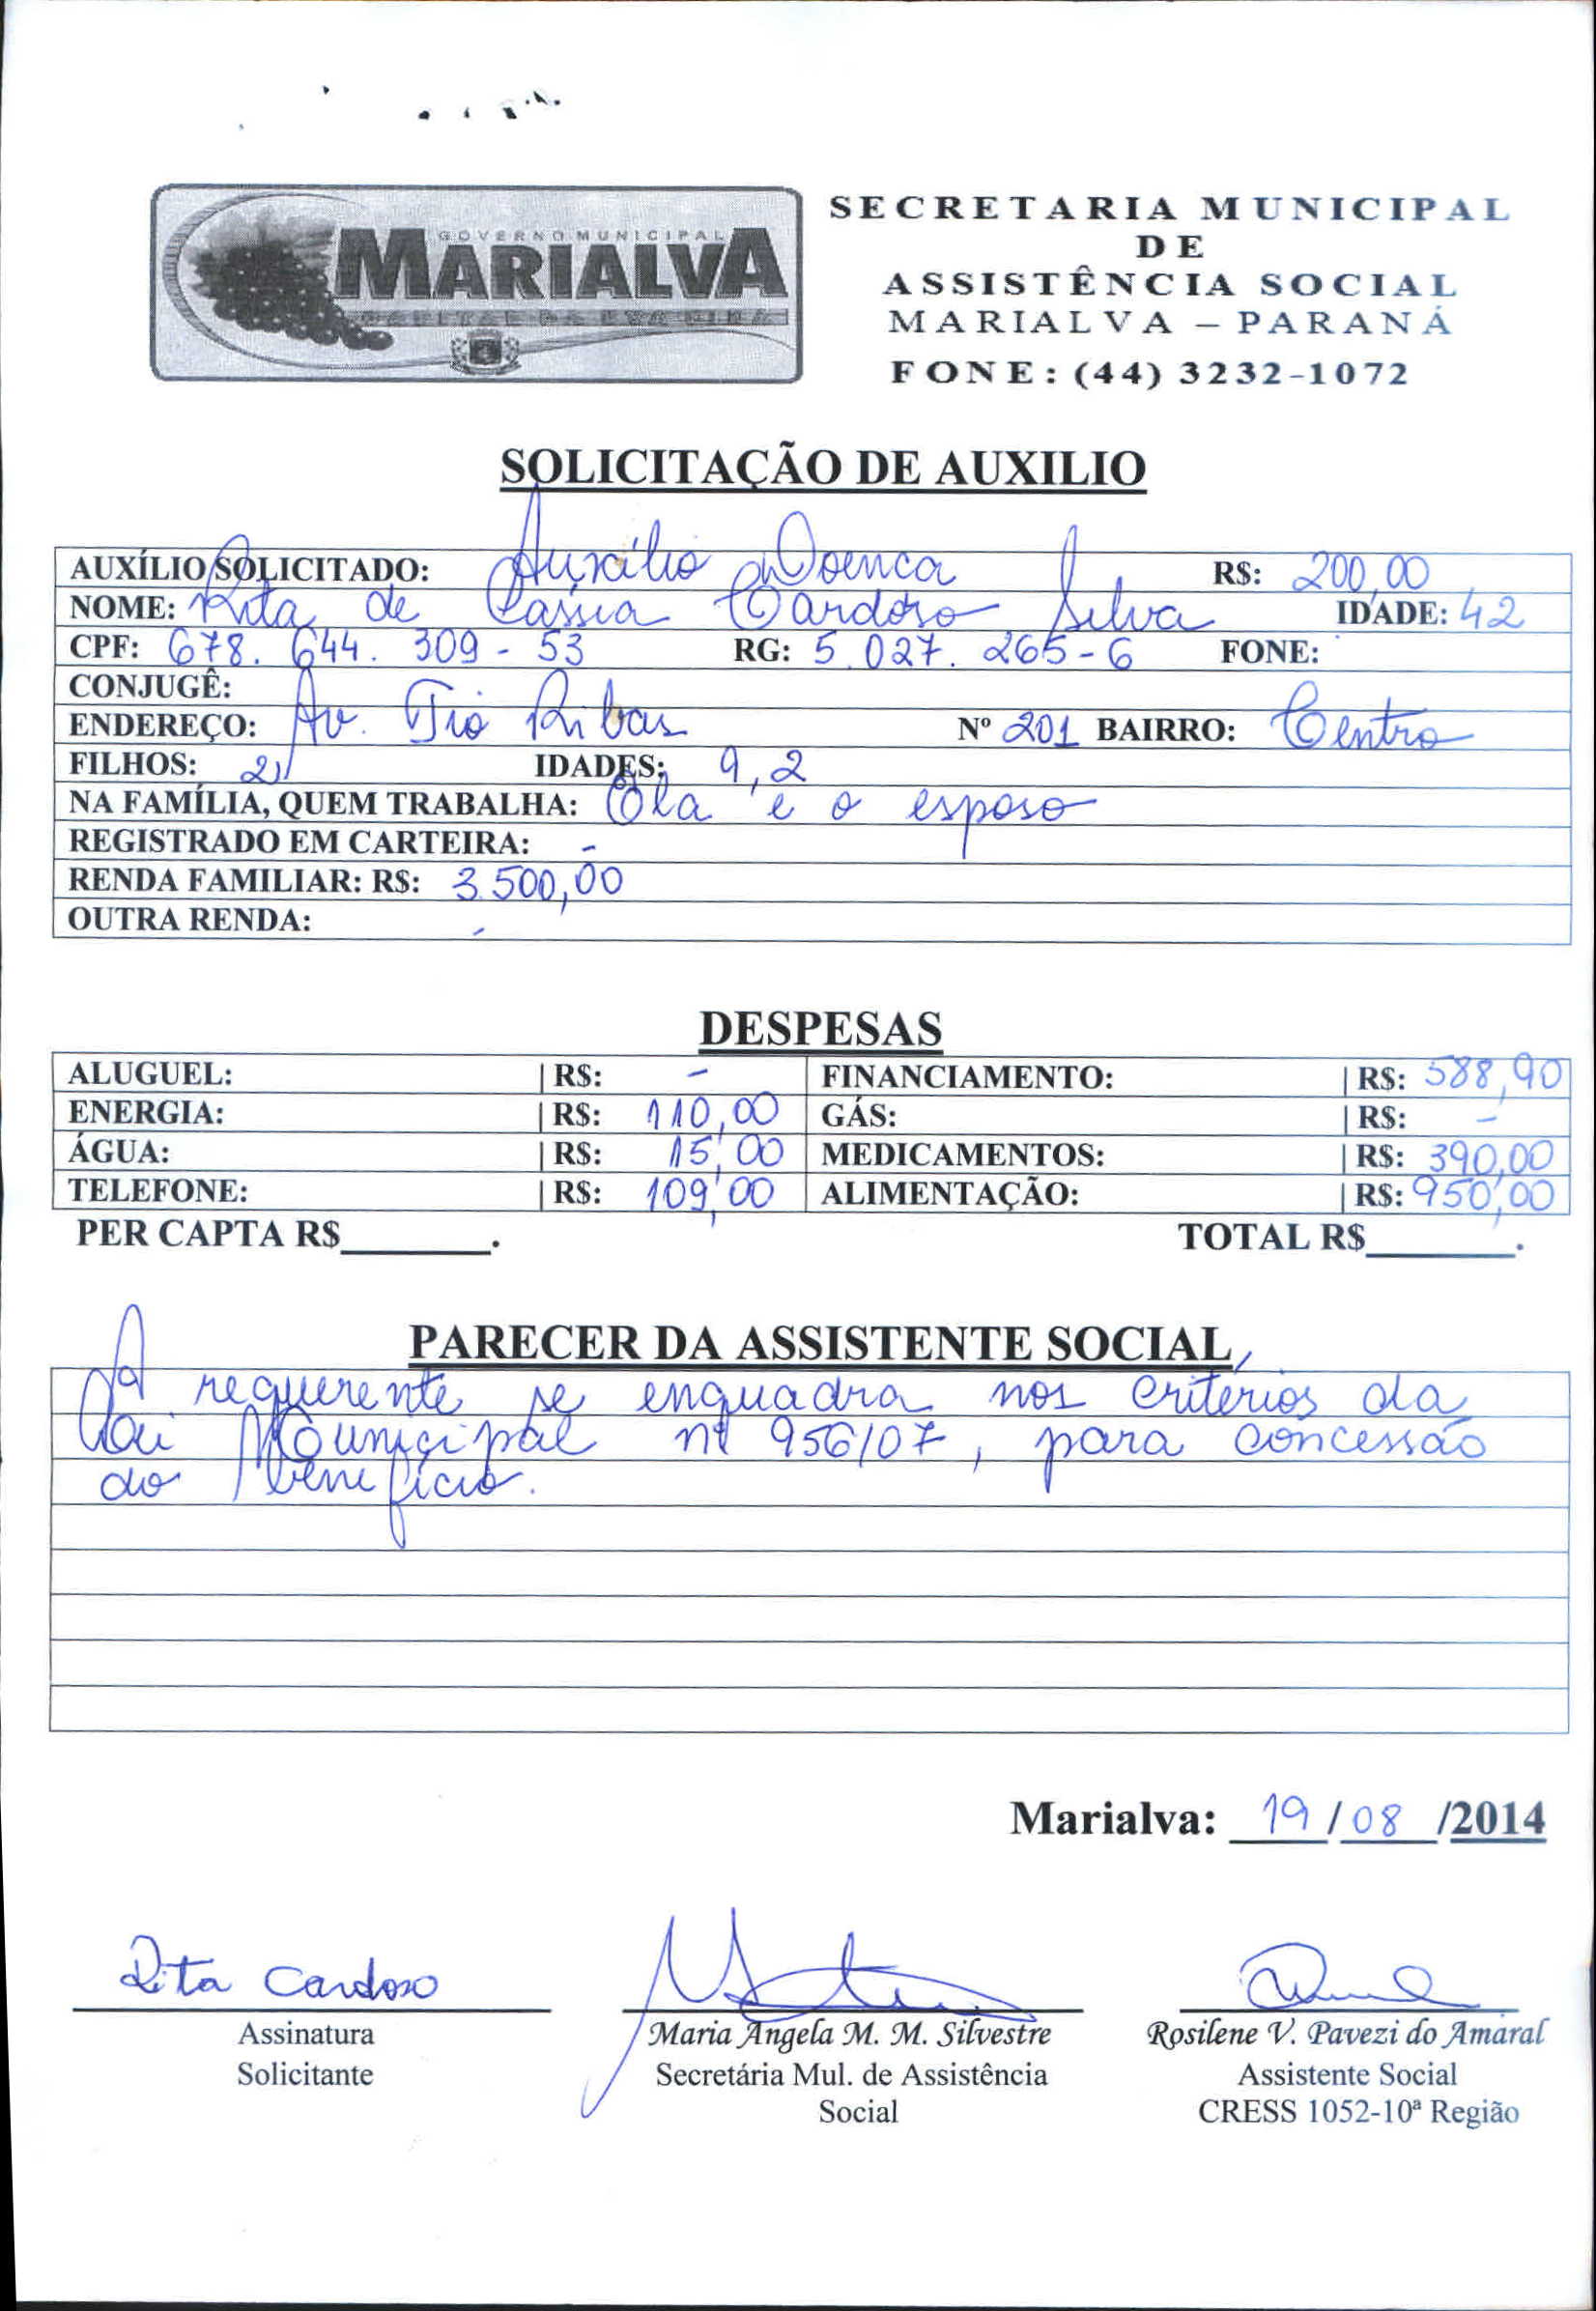 GOVERNO MUNICIPAL
MARIALVA
CAPITAL DA UVA FINA
SECRETARIA MUNICIPAL
DE
ASSISTÊNCIA SOCIAL
MARIALVA – PARANÁ
FONE: (44) 3232-1072
SOLICITAÇÃO DE AUXILIO
AUXÍLIO SOLICITADO: Auxílio Doença R$: 200,00
NOME: Rita de Cássia Cardoso Silva IDADE: 42
CPF: 678.644.309-53 RG: 5.027.265-6 FONE:
CONJUGÊ:
ENDEREÇO: Av. Tio Ribas Nº 201 BAIRRO: Centro
FILHOS: 2 IDADES: 9, 2
NA FAMÍLIA, QUEM TRABALHA: Ela e o esposo
REGISTRADO EM CARTEIRA: -
RENDA FAMILIAR: R$: 3.500,00
OUTRA RENDA: -
DESPESAS
ALUGUEL: | R$: - FINANCIAMENTO: | R$: 588,90
ENERGIA: | R$: 110,00 GÁS: | R$: -
ÁGUA: | R$: 15,00 MEDICAMENTOS: | R$: 390,00
TELEFONE: | R$: 109,00 ALIMENTAÇÃO: | R$: 950,00
PER CAPTA R$________. TOTAL R$________.
PARECER DA ASSISTENTE SOCIAL
A requerente se enquadra nos critérios da
Lei Municipal nº 956/07, para concessão
do benefício.
Marialva: 19/08/2014
Rita Cardoso
Assinatura
Solicitante
Maria Ângela M. M. Silvestre
Secretária Mul. de Assistência
Social
Rosilene V. Pavezi do Amaral
Assistente Social
CRESS 1052-10ª Região